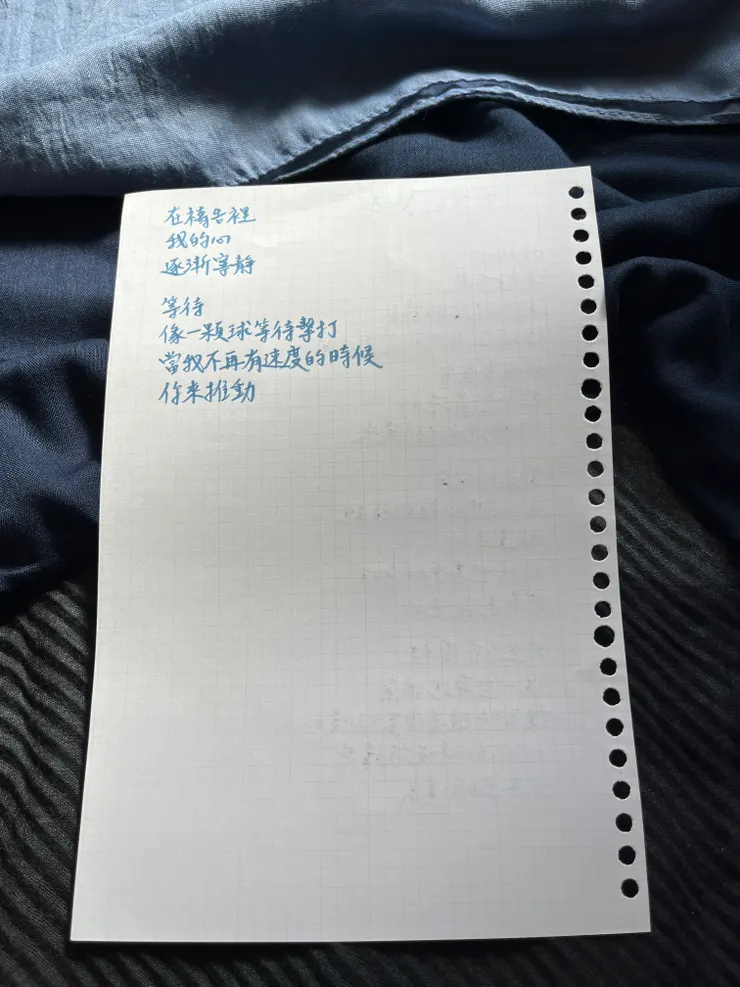 在禱告裡
我的心
逐漸寧靜
等待
像一顆球等待擊打
當我不再有速度的時候
你來推動